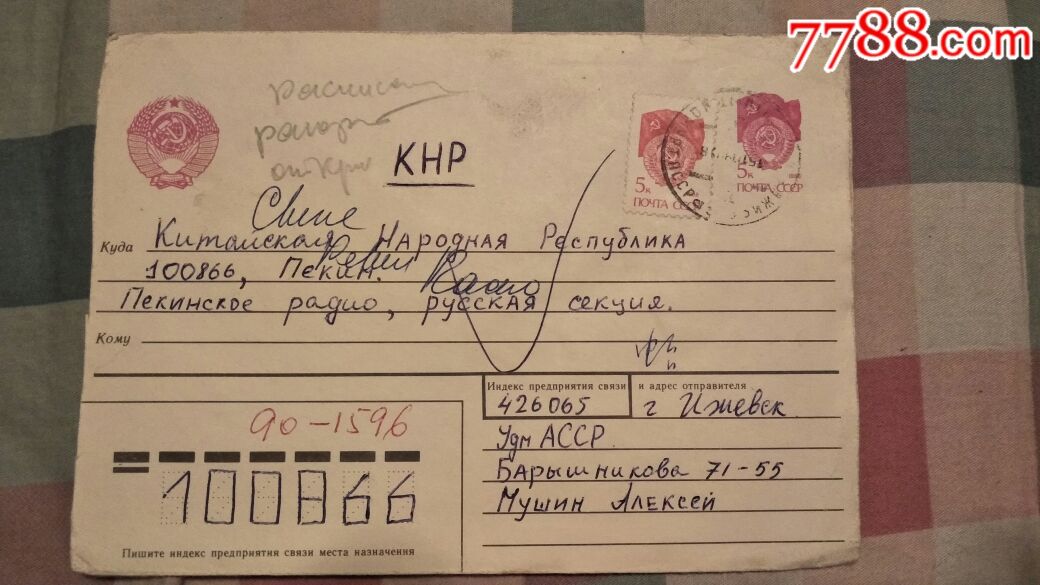 7788.com
КНР
5к
ПОЧТА СССР
5к
ПОЧТА СССР
Куда Китайская Народная Республика
100866, Пекин.
Пекинское радио, русская секция.
Кому
Индекс предприятия связи и адрес отправителя
426065 г Ижевск
Удм АССР.
Барышникова 71-55
Мушин Алексей
90-1596
100866
Пишите индекс предприятия связи места назначения